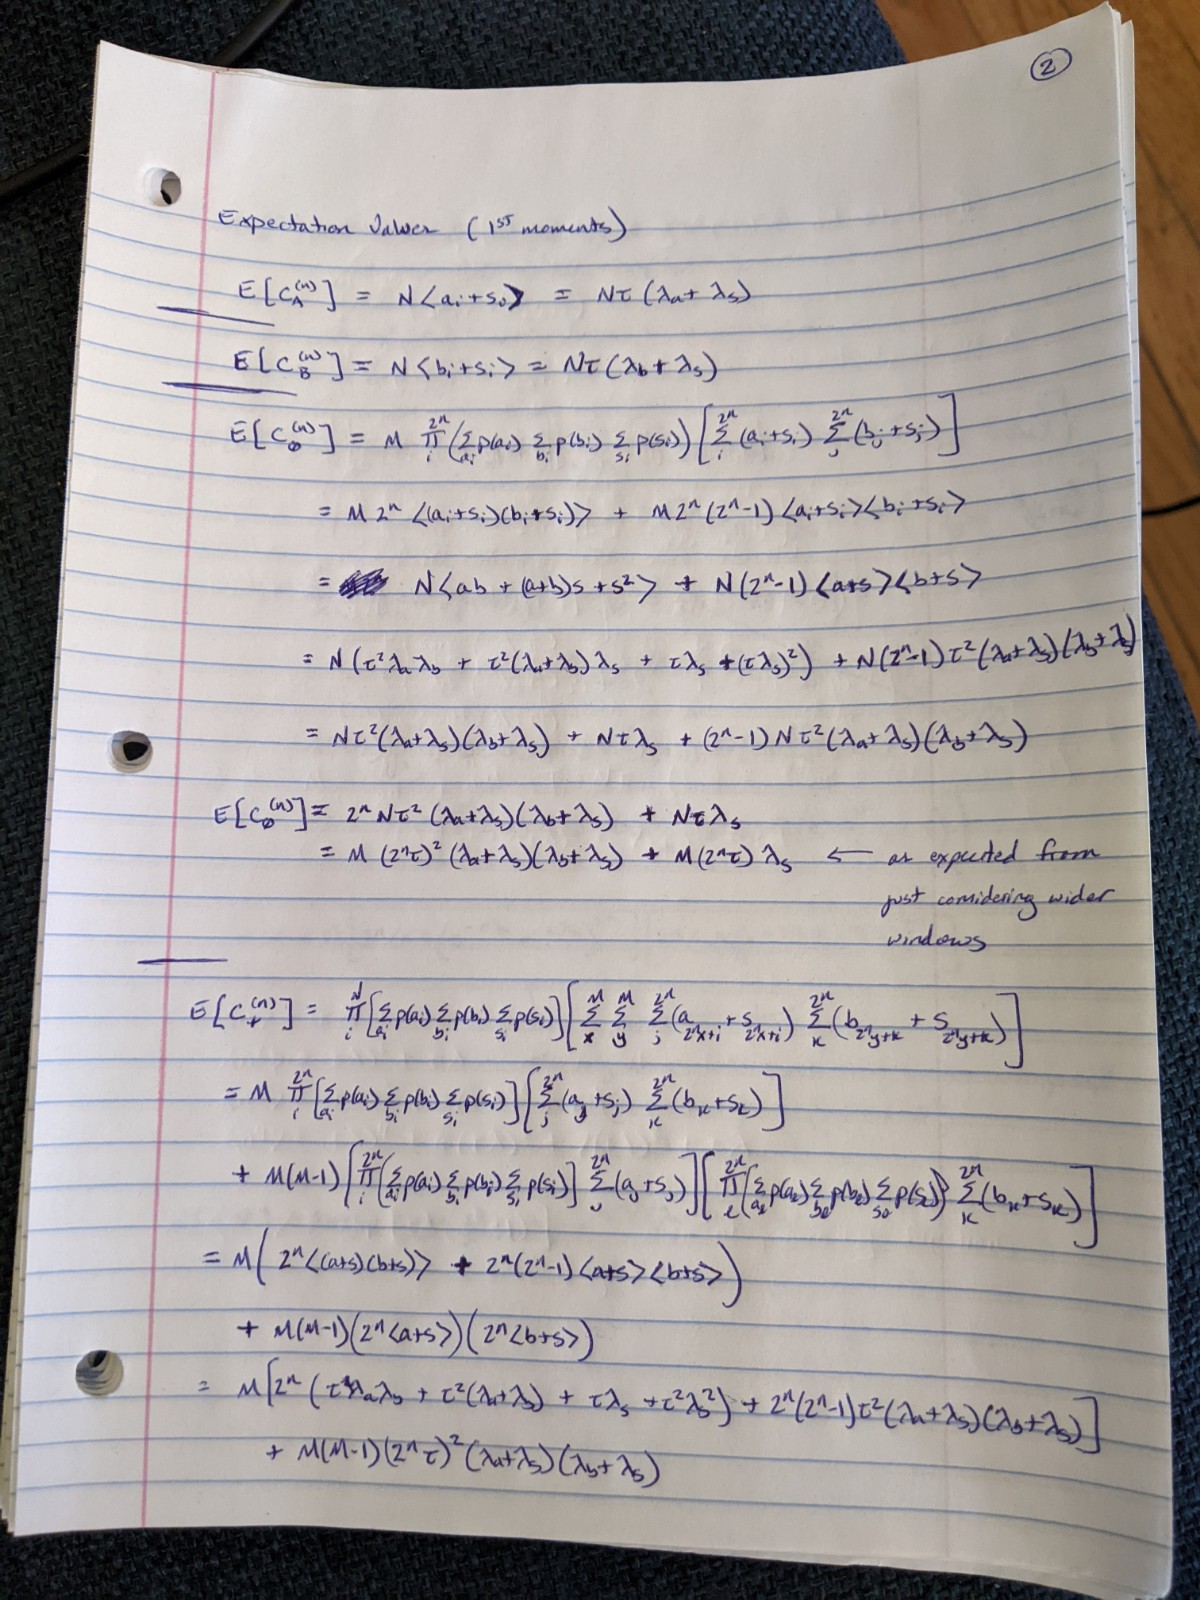 2
Expectation Values (1ST moments)
E[C_A^(n)] = N<a_i+s_i> = Nτ(λ_a+λ_s)
E[C_B^(n)] = N<b_i+s_i> = Nτ(λ_b+λ_s)
E[C_0^(n)] = M ∏_i^{2^n} (∑_{a_i} p(a_i) ∑_{b_i} p(b_i) ∑_{s_i} p(s_i)) [∑_i^{2^n} (a_i+s_i) ∑_j^{2^n} (b_j+s_j)]
= M 2^n <(a_i+s_i)(b_i+s_i)> + M 2^n (2^n-1) <a_i+s_i><b_i+s_i>
= N<ab + (a+b)s + s^2> + N(2^n-1) <a+s><b+s>
= N(τ^2 λ_a λ_b + τ^2(λ_a+λ_b)λ_s + τλ_s + (τλ_s)^2) + N(2^n-1) τ^2(λ_a+λ_s)(λ_b+λ_s)
= Nτ^2(λ_a+λ_s)(λ_b+λ_s) + Nτλ_s + (2^n-1) Nτ^2(λ_a+λ_s)(λ_b+λ_s)
E[C_0^(n)] = 2^n Nτ^2 (λ_a+λ_s)(λ_b+λ_s) + Nτλ_s
= M (2^nτ)^2 (λ_a+λ_s)(λ_b+λ_s) + M(2^nτ) λ_s ← as expected from
just considering wider
windows
E[C_+^(n)] = ∏_i^N [∑_{a_i} p(a_i) ∑_{b_i} p(b_i) ∑_{s_i} p(s_i)] [∑_x^M ∑_y^M ∑_j^{2^n} (a_{2^n x+i} + s_{2^n x+i}) ∑_k^{2^n} (b_{2^n y+k} + s_{2^n y+k})]
= M ∏_i^{2^n} [∑_{a_i} p(a_i) ∑_{b_i} p(b_i) ∑_{s_i} p(s_i)] [∑_j^{2^n} (a_j+s_j) ∑_k^{2^n} (b_k+s_k)]
+ M(M-1) [∏_i^{2^n} (∑_{a_i} p(a_i) ∑_{b_i} p(b_i) ∑_{s_i} p(s_i)] ∑_j^{2^n} (a_j+s_j)] [∏_l^{2^n} (∑_{a_l} p(a_l) ∑_{b_l} p(b_l) ∑_{s_l} p(s_l)) ∑_k^{2^n} (b_k+s_k)]
= M( 2^n <(a+s)(b+s)> + 2^n(2^n-1) <a+s><b+s>)
+ M(M-1)(2^n<a+s>)(2^n<b+s>)
= M[2^n (τ^2 λ_a λ_b + τ^2(λ_a+λ_b) + τλ_s + τ^2 λ_s^2) + 2^n(2^n-1) τ^2(λ_a+λ_s)(λ_b+λ_s)]
+ M(M-1)(2^n τ)^2 (λ_a+λ_s)(λ_b+λ_s)